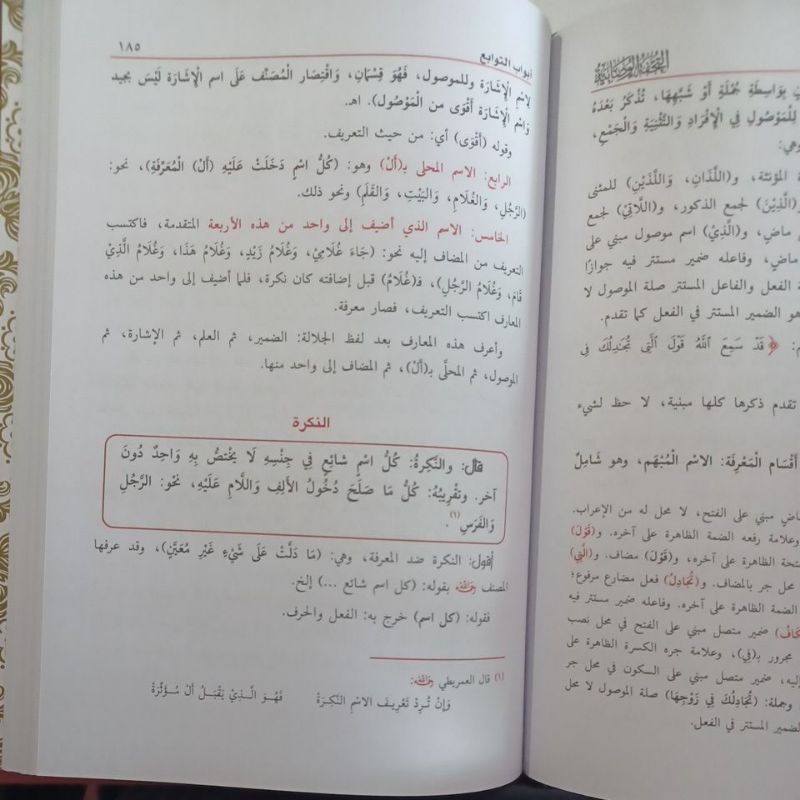 التحفة الوصابية
بِوَاسِطَةِ جُمْلَةٍ أَوْ شَبَهِهَا، تُذْكَرُ بَعْدَهُ
لِلْمَوْصُولِ فِي الْإِفْرَادِ وَالتَّثْنِيَةِ وَالْجَمْعِ،
وهي:
المؤنثة، و(اللَّذَانِ، وَاللَّذَيْنِ) للمثنى
(الَّذِيْنَ) لجمع الذكور، و(اللَّاتِيْ) لجمع
ماضٍ، و(الَّذِيْ) اسم موصول مبني على
ماضٍ، وفاعله ضمير مستتر فيه جوازًا
الفعل والفاعل المستتر صلة الموصول لا
هو الضمير المستتر في الفعل كما تقدم.
﴿قَدْ سَمِعَ ٱللَّهُ قَوْلَ ٱلَّتِي تُجَادِلُكَ فِي
تقدم ذكرها كلها مبنية، لا حظ لشيء
أَقْسَامِ الْمَعْرِفَةِ: الاسم الْمُبْهَم، وهو شَامِلٌ
ماضٍ مبني على الفتح، لا محل له من الإعراب.
وعلامة رفعه الضمة الظاهرة على آخره. و(قَوْلَ)
الظاهرة على آخره، و(قَوْلَ) مضاف. و(الَّتِي)
محل جر بالمضاف. و(تُجَادِلُ) فعل مضارع مرفوع؛
الضمة الظاهرة على آخره. وفاعله ضمير مستتر فيه
ضمير متصل مبني على الفتح في محل نصب
مجرور بـ(فِي)، وعلامة جره الكسرة الظاهرة على
إليه، ضمير متصل مبني على السكون في محل جر
وجملة: (تُجَادِلُكَ فِي زَوْجِهَا) صلة الموصول لا محل
الضمير المستتر في الفعل.
أبواب التوابع
١٨٥
لِاسْمِ الْإِشَارَةِ وللموصول، فَهُوَ قِسْمَانِ، وَاقْتِصَار الْمُصَنِّف عَلَى اسم الْإِشَارَة لَيْسَ بجيد
وَاسْم الْإِشَارَة أَقْوَى من الْمَوْصُول). اهـ.
وقوله (أَقْوَى) أي: من حيث التعريف.
الرابع: الاسم المحلى بـ(أَلْ) وهو: (كُلُّ اسْمٍ دَخَلَتْ عَلَيْهِ (أَلْ) الْمُعَرِّفَةِ)، نحو:
(الرَّجُلِ، وَالْغُلَامِ، وَالبَيْتِ، وَالقَلَمِ) ونحو ذلك.
الخامس: الاسم الذي أضيف إلى واحد من هذه الأربعة المتقدمة، فاكتسب
التعريف من المضاف إليه نحو: (جَاءَ غُلَامِيْ، وَغُلَامُ زَيْدٍ، وَغُلَامُ هَذَا، وَغُلَامُ الَّذِيْ
قَامَ، وَغُلَامُ الرَّجُلِ)، فـ(غُلَامُ) قبل إضافته كان نكرة، فلما أضيف إلى واحد من هذه
المعارف اكتسب التعريف، فصار معرفة.
وأعرف هذه المعارف بعد لفظ الجلالة: الضمير، ثم العلم، ثم الإشارة، ثم
الموصول، ثم المحلَّى بـ(أَلْ)، ثم المضاف إلى واحد منها.
النكرة
قال: والنَّكِرَةُ: كُلُّ اسْمٍ شائِعٍ فِي جِنْسِهِ لَا يَخْتصُّ بِهِ وَاحِدٌ دُونَ
آخر. وتقْرِيْبُهُ: كُلُّ مَا صَلَحَ دُخُولُ الأَلِفِ وَاللَّامِ عَلَيْهِ، نحْوُ: الرَّجُلِ
وَالفَرَسِ(١).
أقول: النكرة ضد المعرفة، وهي: (مَا دَلَّتْ عَلَى شَيْءٍ غَيْرِ مُعَيَّنٍ)، وقد عرفها
المصنف رحمه الله بقوله: (كل اسم شائع ...) إلخ.
فقوله: (كل اسم) خرج به: الفعل والحرف.
(١) قال العمريطي رحمه الله:
وَإِنْ تُـرِدْ تَعْرِيـفَ الاسْمِ النَّكِرَةْ فَهُوَ الَّذِيْ يَقْبَـلُ أَلْ مُؤَثِّرَةْ